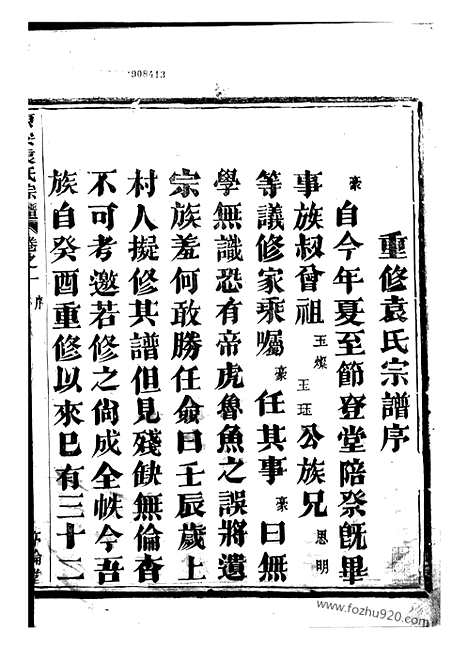 908413
重修袁氏宗譜序
豪自今年夏至節登堂陪祭旣畢
事族叔曾祖玉燦玉珏公族兄恩明
等議修家乘囑豪任其事豪曰無
學無識恐有帝虎魯魚之誤將遺
宗族羞何敢勝任僉曰壬辰歲上
村人擬修其譜但見殘缺無倫杳
不可考邀若修之尙成全帙今吾
族自癸酉重修以來已有三十二
袁氏宗譜 卷之一 序
www.fozhu920.com